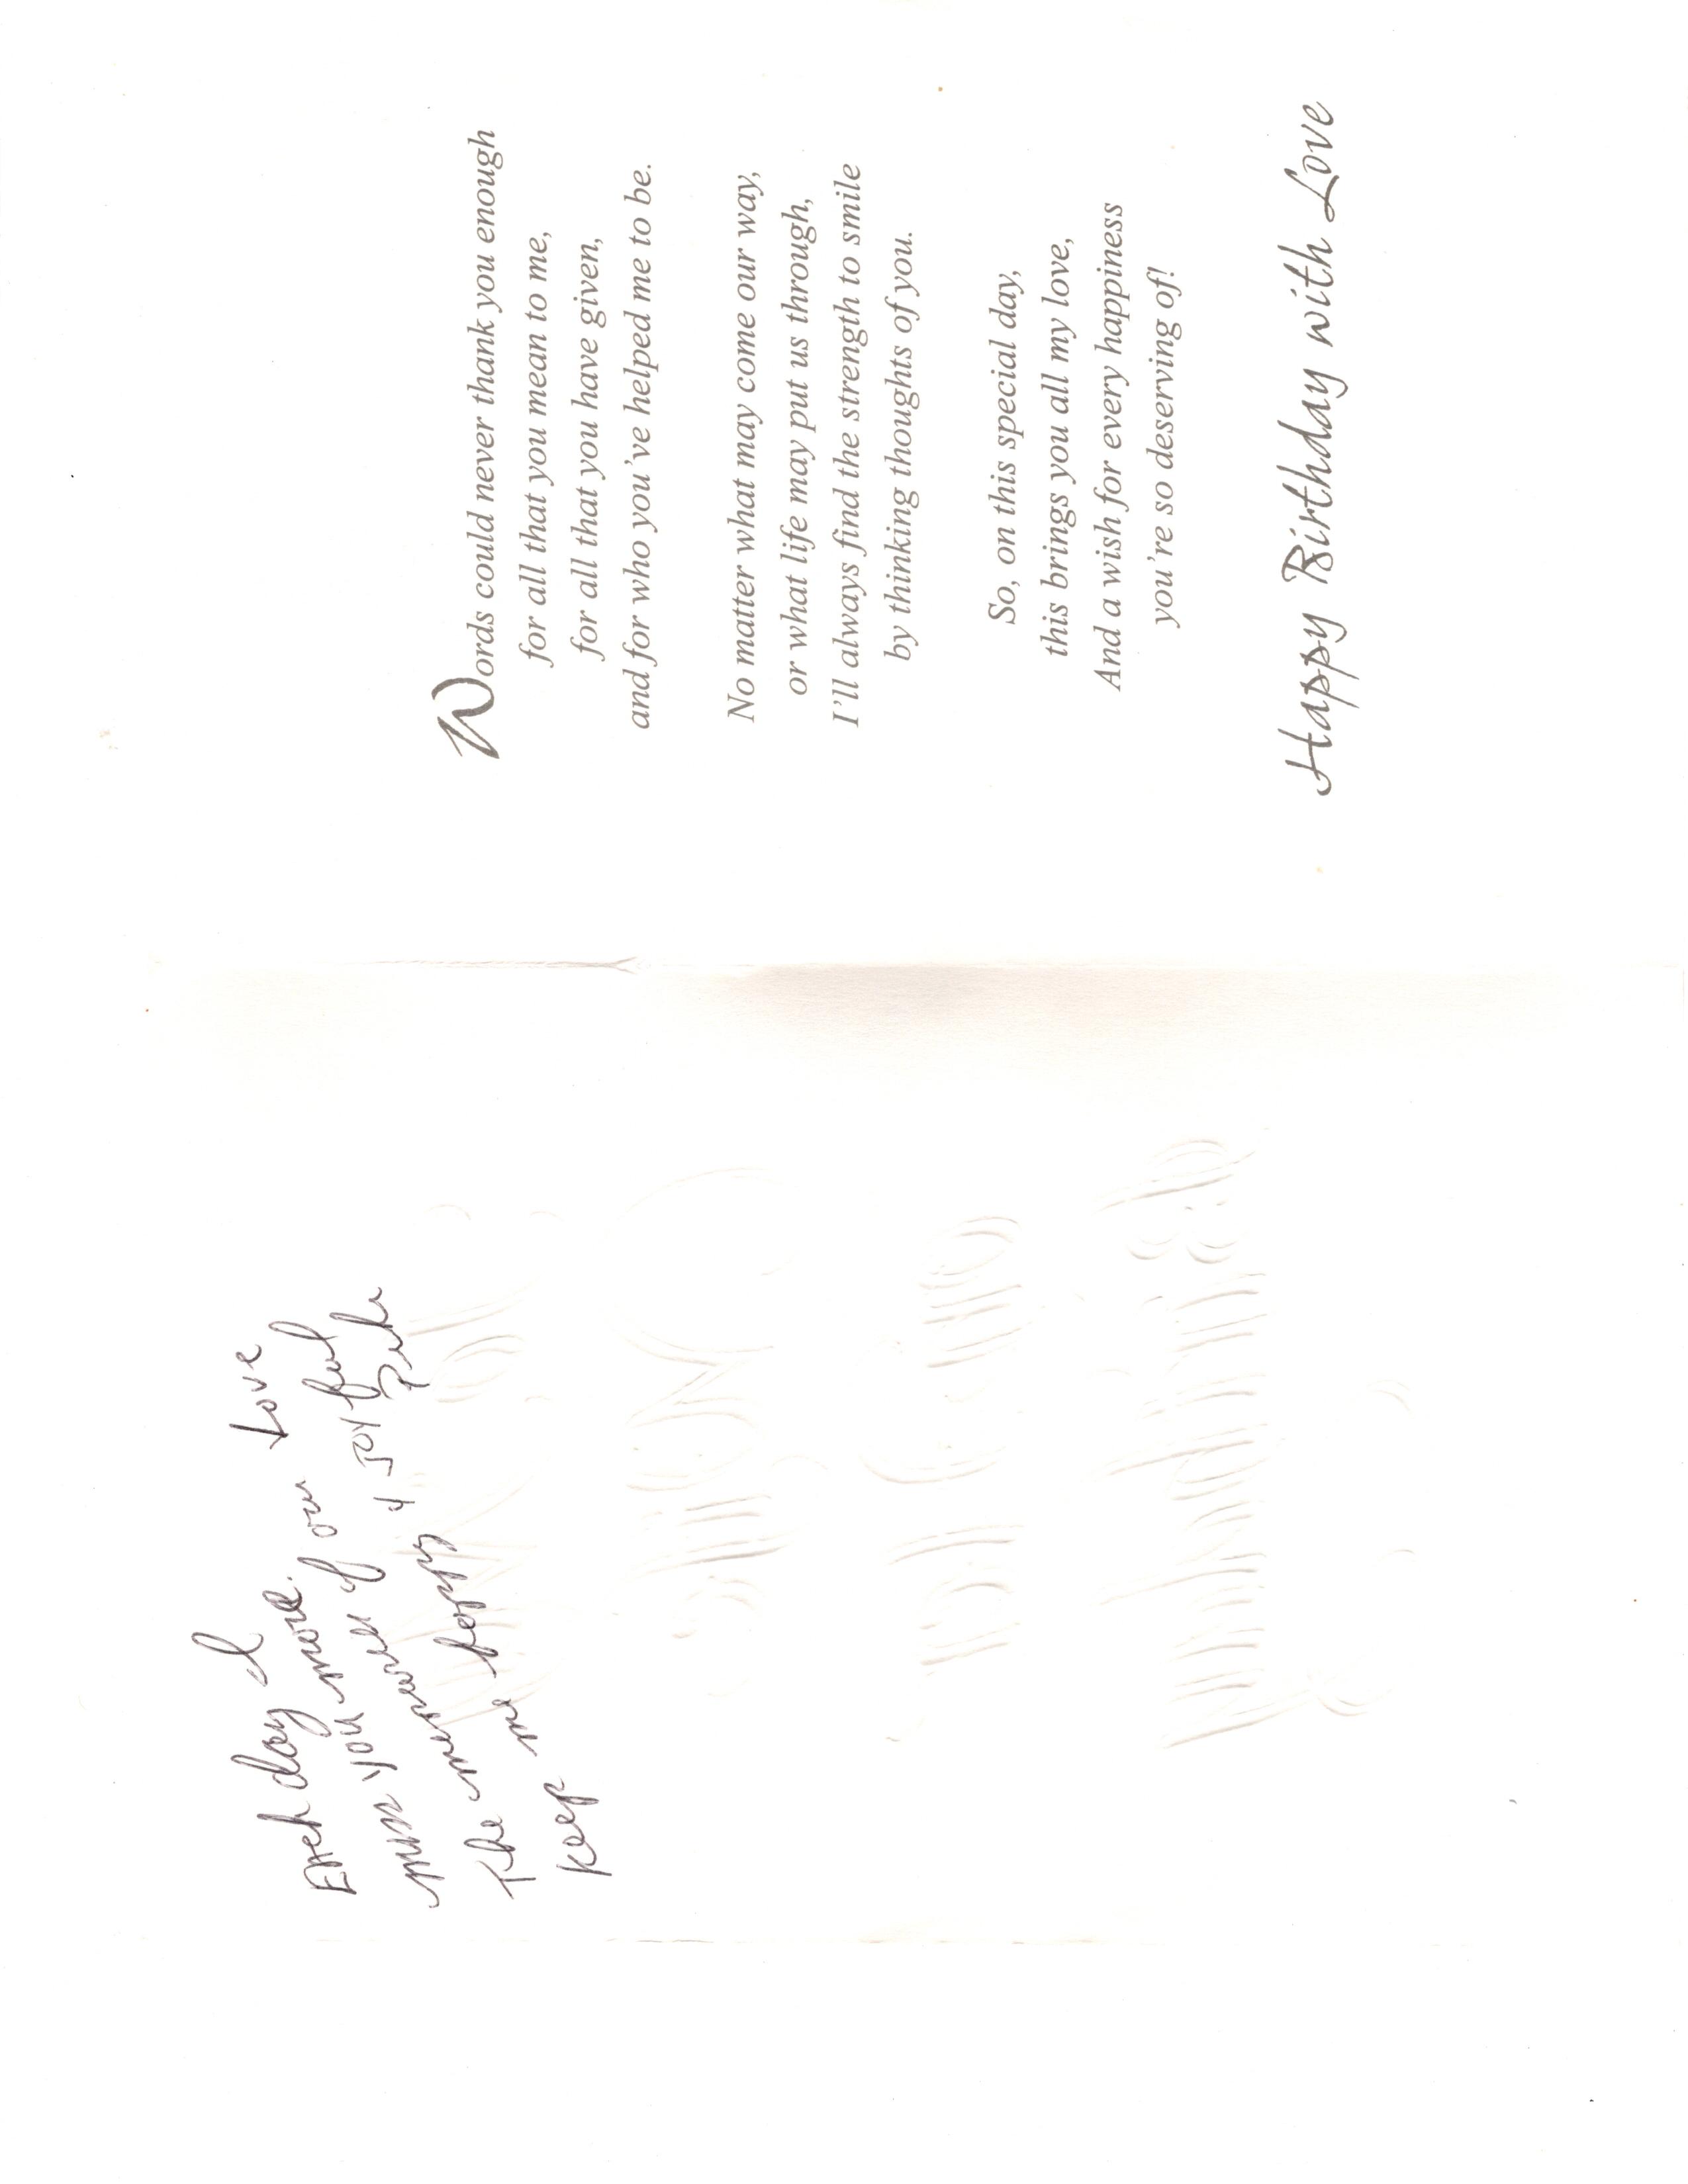 Each day I
miss you more.
The memories of our Love
Keep me happy & Joyful
Words could never thank you enough
for all that you mean to me,
for all that you have given,
and for who you've helped me to be.
No matter what may come our way,
or what life may put us through,
I'll always find the strength to smile
by thinking thoughts of you.
So, on this special day,
this brings you all my love,
And a wish for every happiness
you're so deserving of!
Happy Birthday with Love